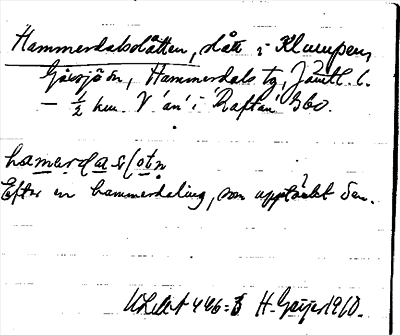 Hammerdalsslåtten, slått i Klumpen,
Gåxsjö sn, Hammerdals tg, Jämtl. l.
– ½ km. V 'än' i 'Raftän' 360.
hamərdasḷotn
Efter en hammerdaling, som upptäckt den.
446: H. Geijer 1910.